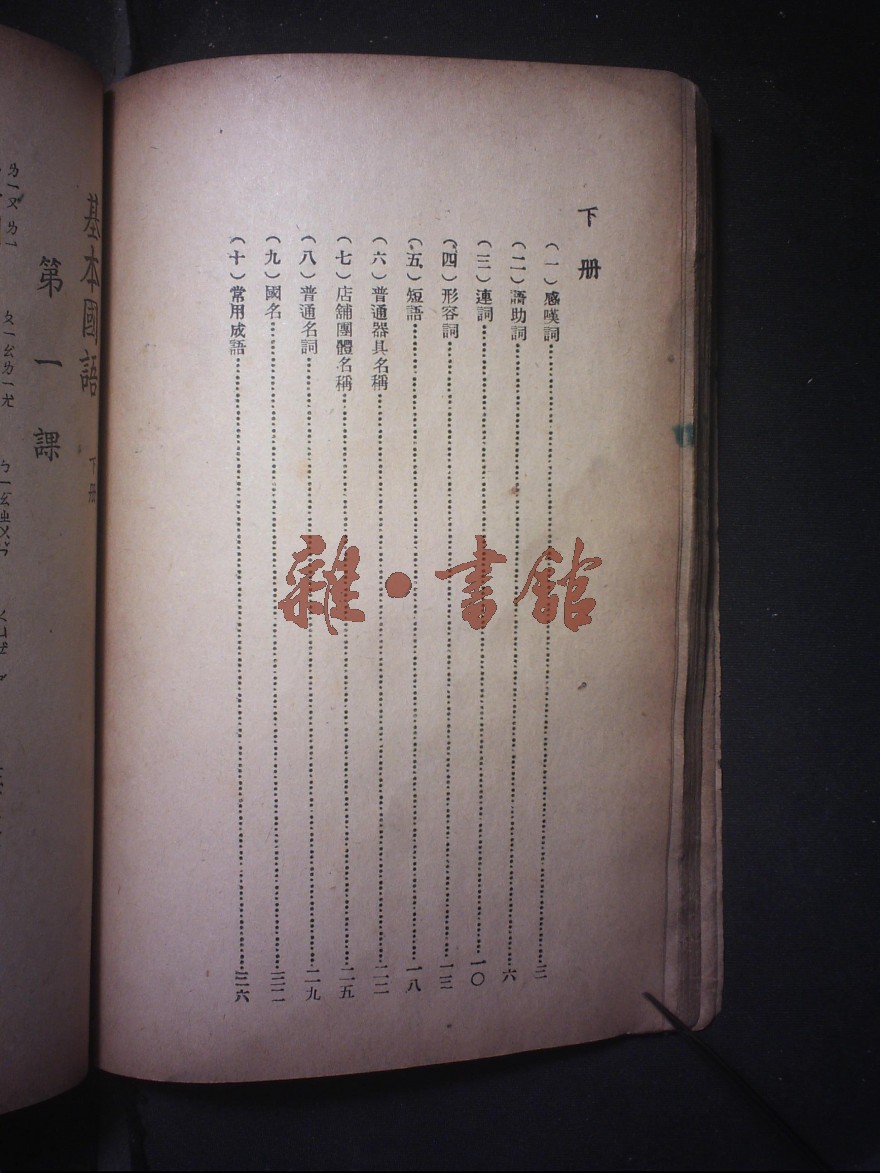 下册
(一)感嘆詞……三
(二)語助詞……六
(三)連詞……一〇
(四)形容詞……一三
(五)短語……一八
(六)普通器具名稱……二二
(七)店舖團體名稱……二五
(八)普通名詞……二九
(九)國名……三二
(十)常用成語……三六
基本國語 下册
第一課
ㄌㄧㄡ ㄌㄧ ㄆㄧㄠㄌㄧㄤ ㄅㄧㄠㄓㄨㄣ
雜·書館